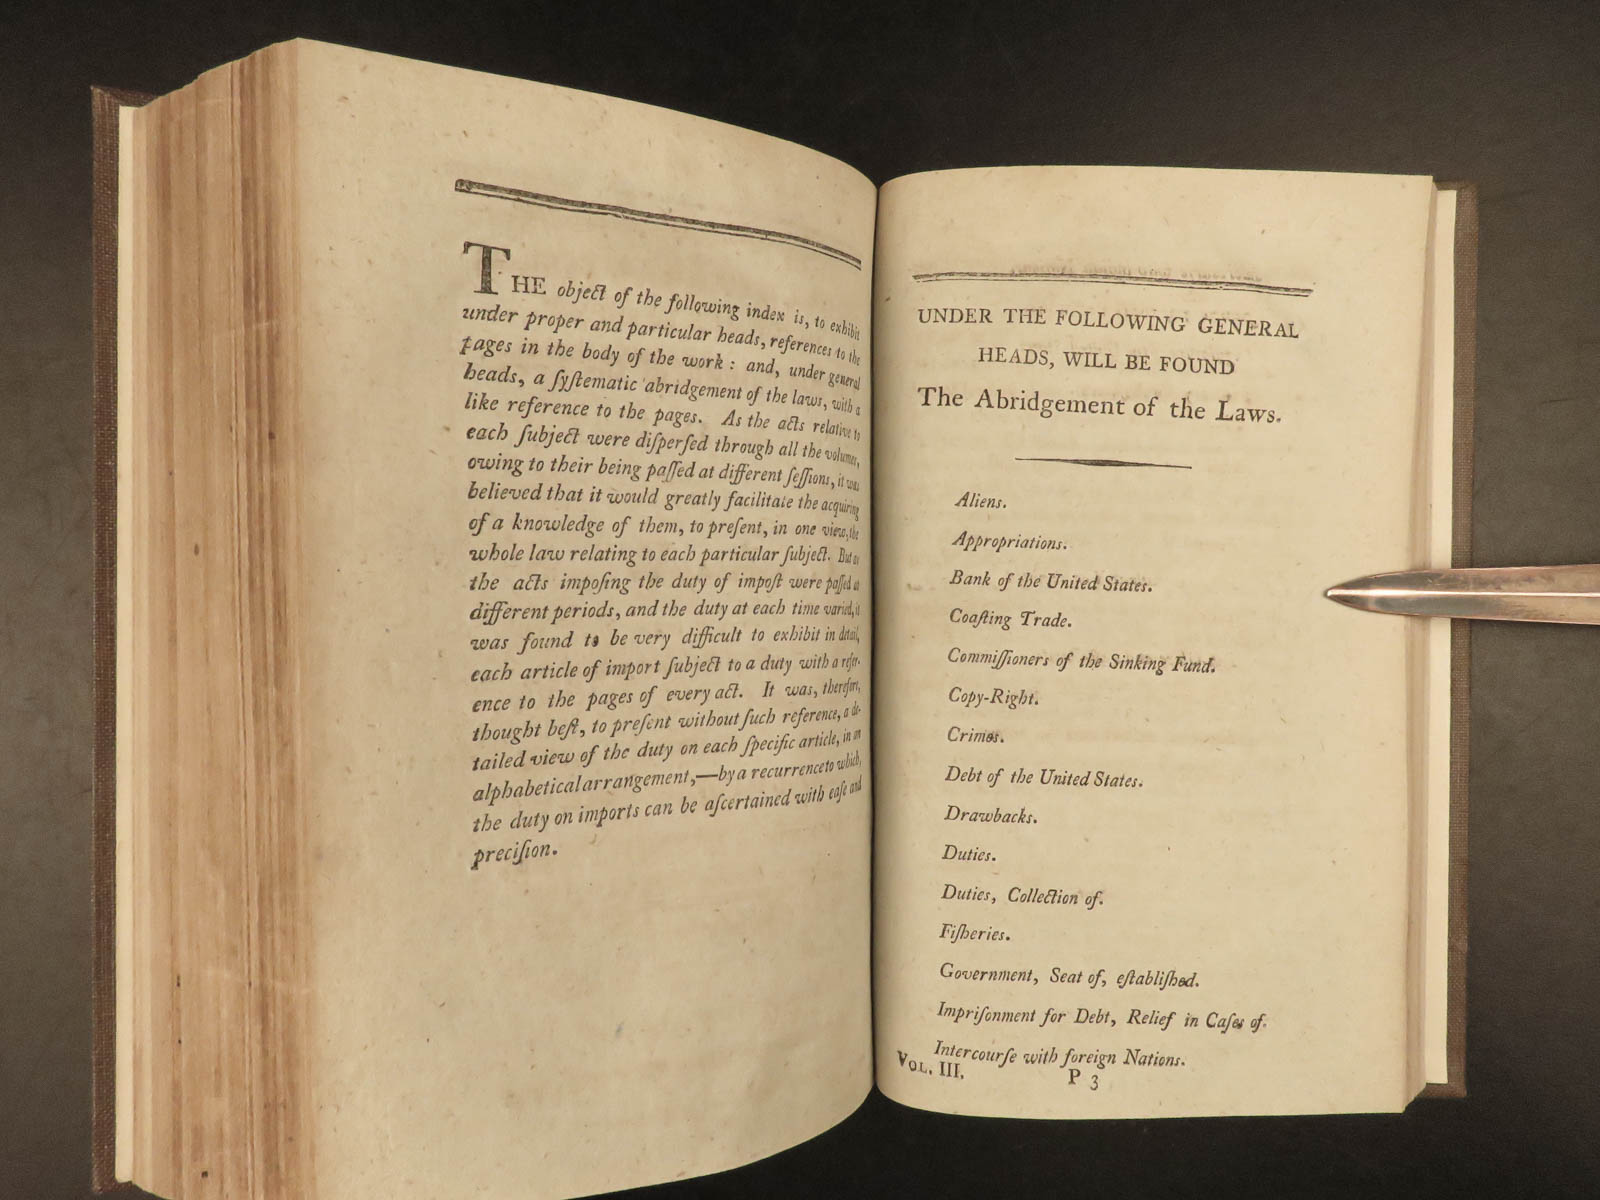 THE object of the following index is, to exhibit
under proper and particular heads, references to the
pages in the body of the work: and, under general
heads, a ſyſtematic abridgement of the laws, with a
like reference to the pages. As the acts relative to
each ſubject were diſperſed through all the volumes,
owing to their being paſſed at different ſeſſions, it was
believed that it would greatly facilitate the acquiring
of a knowledge of them, to preſent, in one view, the
whole law relating to each particular ſubject. But as
the acts impoſing the duty of impoſt were paſſed at
different periods, and the duty at each time varied, it
was found to be very difficult to exhibit in detail,
each article of import ſubject to a duty with a refer-
ence to the pages of every act. It was, therefore,
thought beſt, to preſent without ſuch reference, a de-
tailed view of the duty on each ſpecific article, in an
alphabetical arrangement,—by a recurrence to which,
the duty on imports can be aſcertained with eaſe and
preciſion.
UNDER THE FOLLOWING GENERAL
HEADS, WILL BE FOUND
The Abridgement of the Laws.
Aliens.
Appropriations.
Bank of the United States.
Coaſting Trade.
Commiſſioners of the Sinking Fund.
Copy-Right.
Crimes.
Debt of the United States.
Drawbacks.
Duties.
Duties, Collection of.
Fiſheries.
Government, Seat of, eſtabliſhed.
Impriſonment for Debt, Relief in Caſes of.
Intercourſe with foreign Nations.
VOL. III. P 3